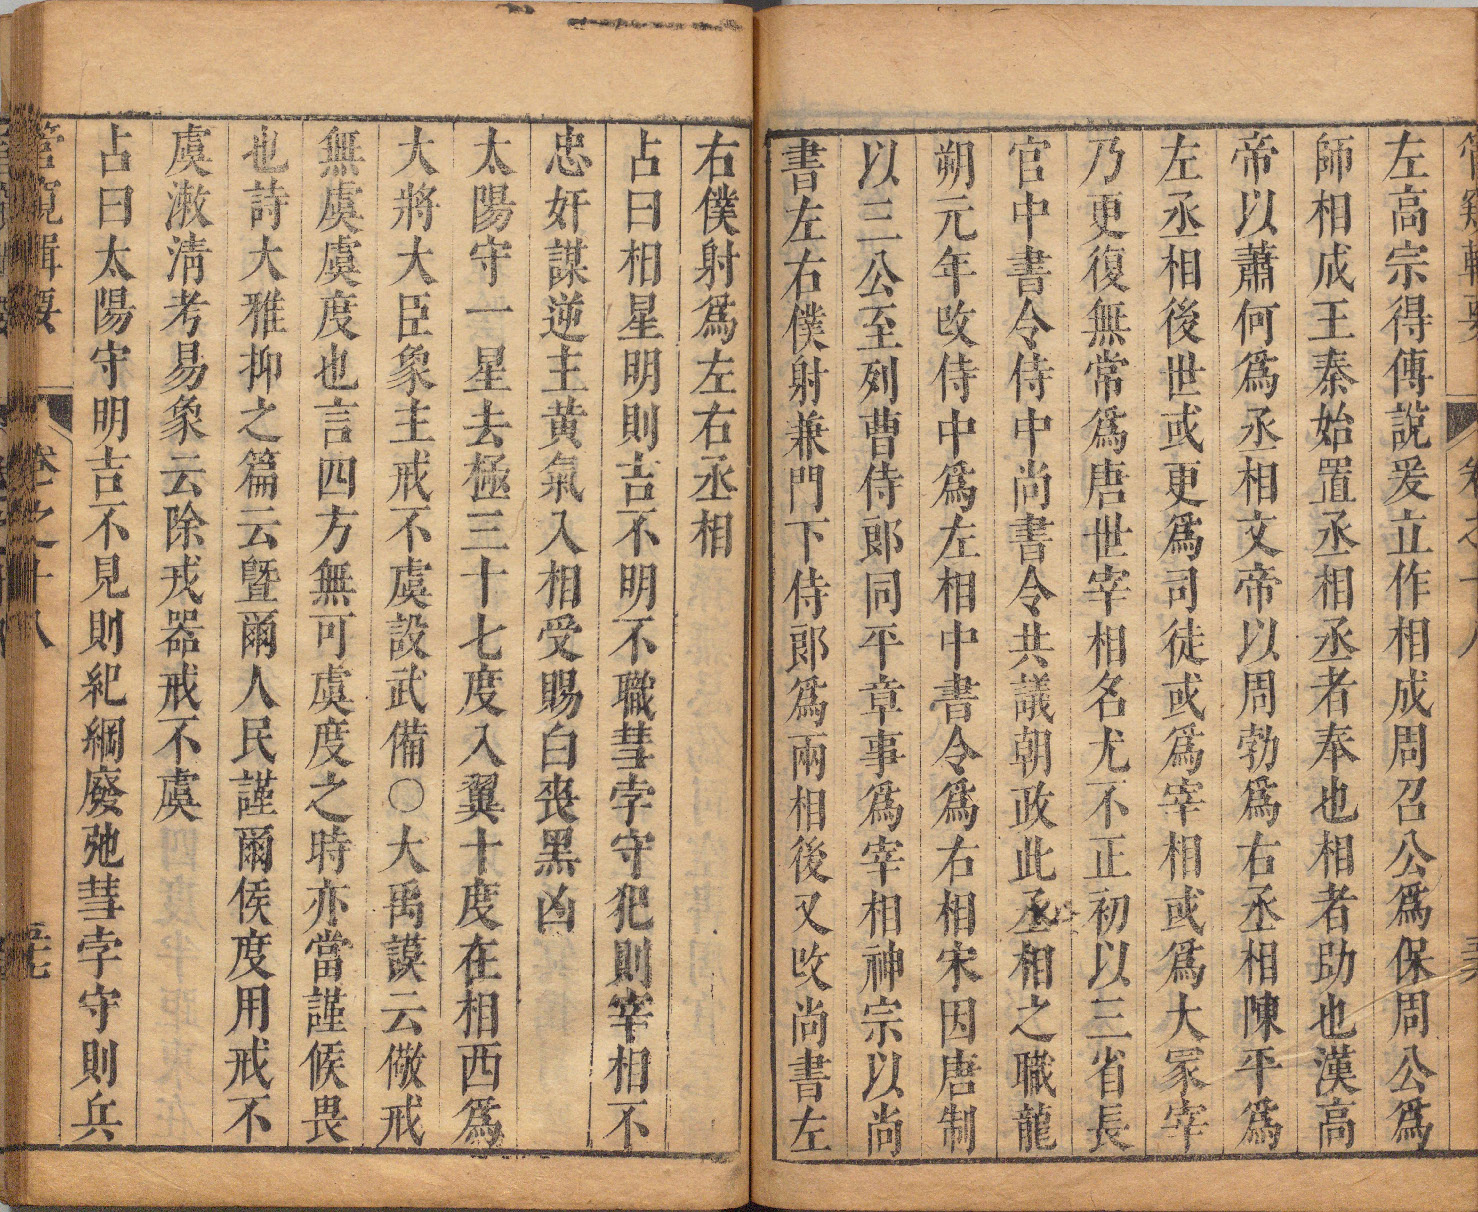 管窺輯要 卷之十八 
左高宗得傅說爰立作相成周召公爲保周公爲
師相成王秦始置丞相丞者奉也相者助也漢高
帝以蕭何爲丞相文帝以周勃爲右丞相陳平爲
左丞相後世或更爲司徒或爲宰相或爲大冢宰
乃更復無常爲唐世宰相名尤不正初以三省長
官中書令侍中尚書令共議朝政此丞相之職龍
朔元年改侍中爲左相中書令爲右相宋因唐制
以三公至列曹侍郎同平章事爲宰相神宗以尚
書左右僕射兼門下侍郎爲兩相後又改尚書左
右僕射爲左右丞相
占曰相星明則吉不明不職彗孛守犯則宰相不
忠奸謀逆主黄氣入相受賜白喪黑凶
太陽守一星去極三十七度入翼十度在相西爲
大將大臣象主戒不虞設武備○大禹謨云儆戒
無虞虞度也言四方無可虞度之時亦當謹候畏
也詩大雅抑之篇云曁爾人民謹爾侯度用戒不
虞漖淸考易象云除戎器戒不虞
占曰太陽守明吉不見則紀綱廢弛彗孛守則兵
管窺輯要 卷之十八